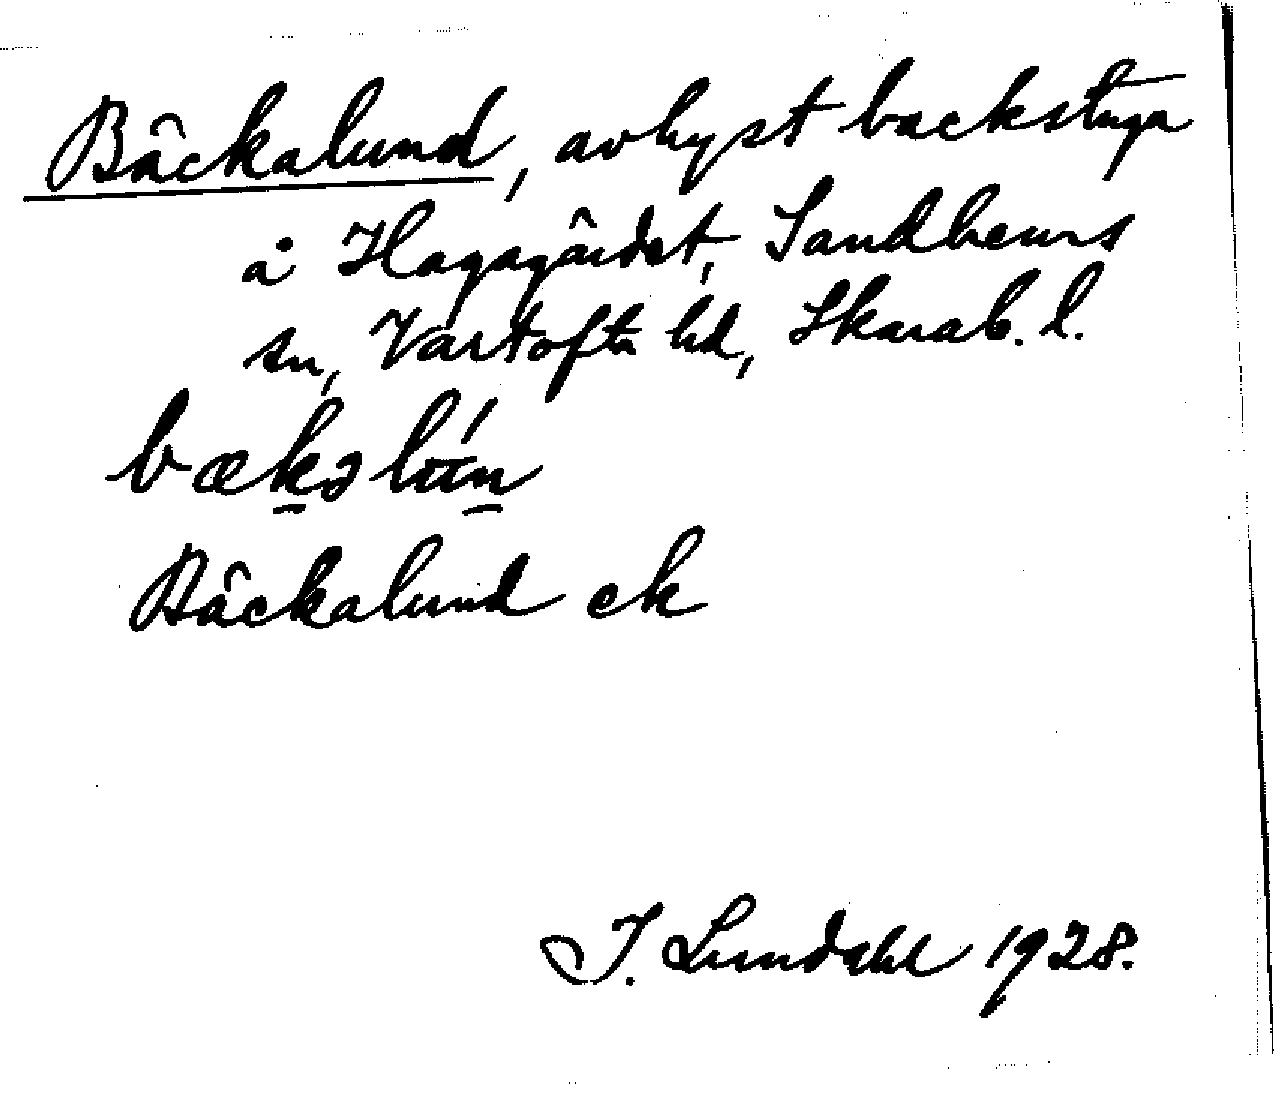 Bäckalund, avhyst backstuga
å Hagagärdet, Sandhems
sn, Vartofta hd, Skarab. l.
Bäckalund ek
I. Lundahl 1928.